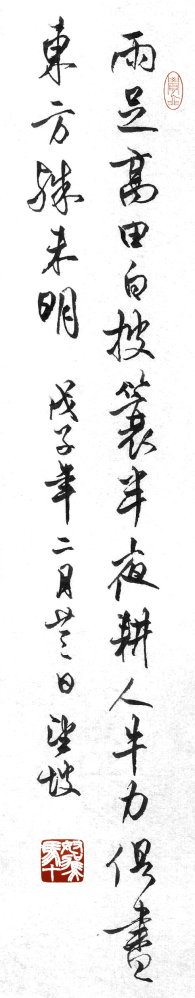 雨足高田白披簑半夜耕人牛力俱盡
東方殊未明 戊子年二月廿三日望坡